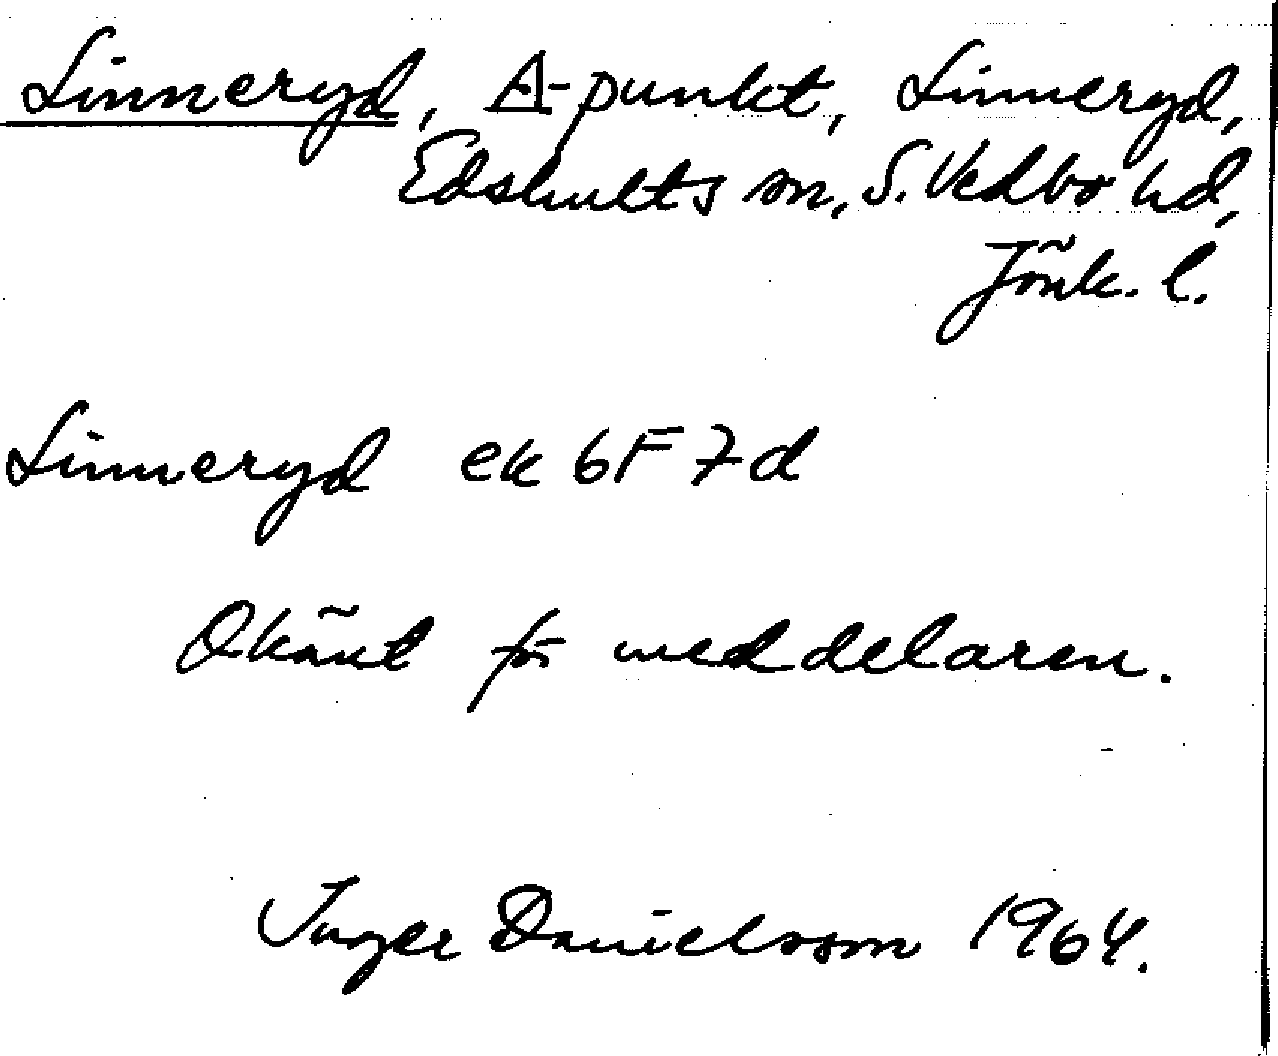 Linneryd, A-punkt, Linneryd,
Edshults sn, S. Vedbo hd,
Jönk. l.
Linneryd ek 6F7d
Okänt för meddelaren.
Inger Danielsson 1964.